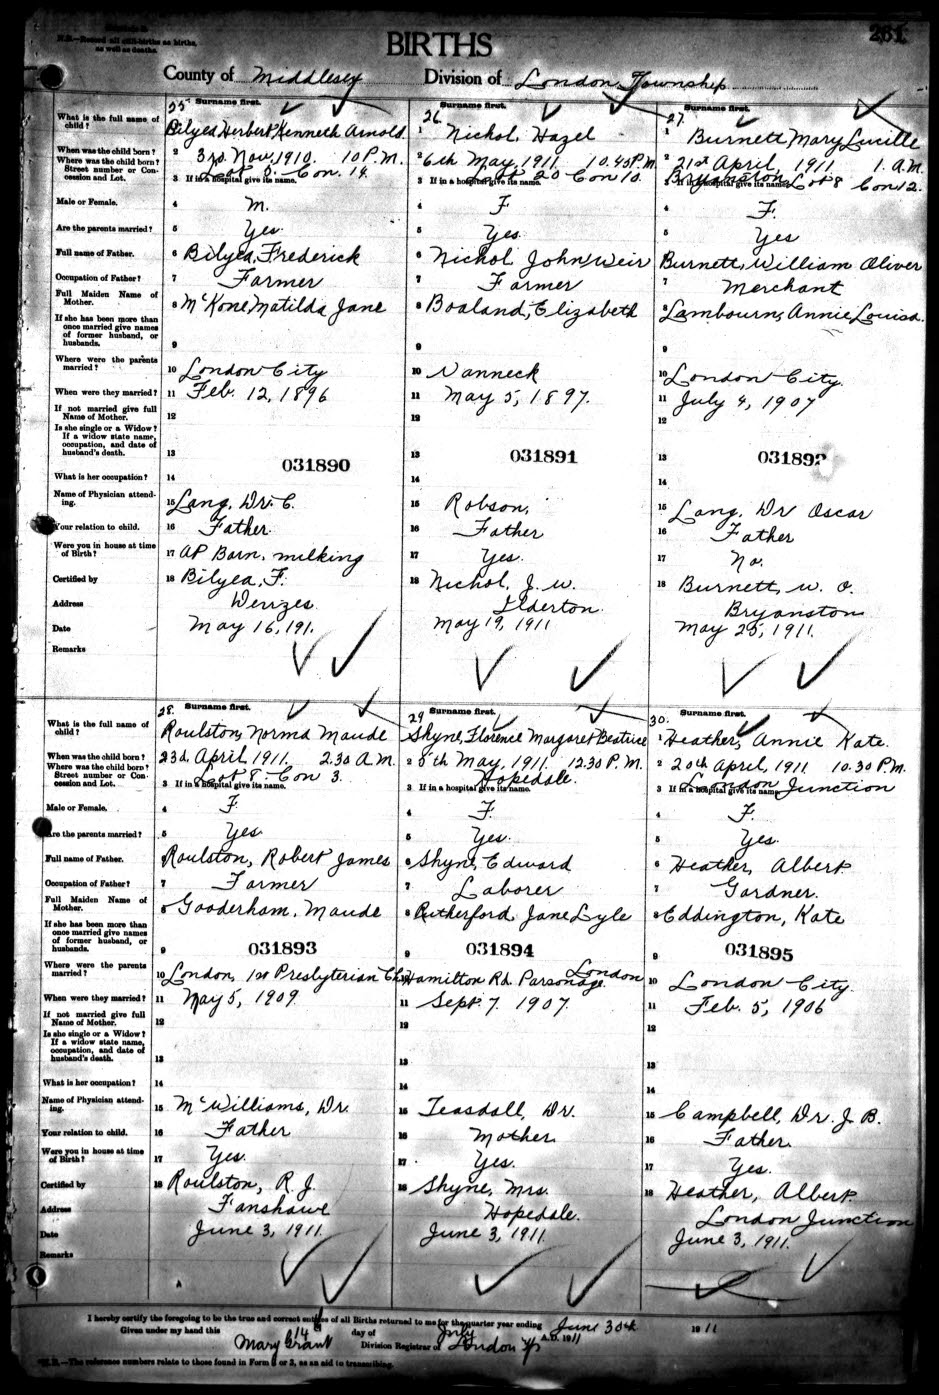 261
N.B.—Record all still-births as births,
as well as deaths.
BIRTHS
County of Middlesex Division of London Township
25 Surname first. 26 Surname first. 27. Surname first.
What is the full name of child? Bilyea, Herbert Kenneth Arnold. 1 Nichol, Hazel 1 Burnett Mary Lucille
When was the child born? 2 3rd. Nov, 1910. 10 P.M. 2 6th May, 1911. 10.40 P.M. 2 21st April, 1911. 1. A.M.
Where was the child born? Street number or Concession and Lot. Lot 8. Con. 14. Lot 20 Con 10. Bryanston Lot 8 Con 12.
3 If in a hospital give its name. 3 If in a hospital give its name. 3 If in a hospital give its name.
Male or Female. 4 M. 4 F. 4 F.
Are the parents married? 5 Yes. 5 Yes. 5 Yes
Full name of Father. 6 Bilyea, Frederick 6 Nichol John Weir Burnett, William Oliver
Occupation of Father? 7 Farmer 7 Farmer 7 Merchant
Full Maiden Name of Mother. 8 McKone, Matilda Jane 8 Boaland, Elizabeth 8 Lambourn, Annie Louisa.
If she has been more than once married give names of former husband, or husbands. 9 9 9
Where were the parents married? 10 London City 10 Vanneck 10 London City.
When were they married? 11 Feb. 12, 1896 11 May 5, 1897. 11 July 4, 1907
If not married give full Name of Mother. 12 12 12
Is she single or a Widow? If a widow state name, occupation, and date of husband's death. 13 13 13
031890 031891 031892
What is her occupation? 14 14 14
Name of Physician attending. 15 Lang, Dr. C. 15 Robson, 15 Lang, Dr Oscar
Your relation to child. 16 Father. 16 Father 16 Father
Were you in house at time of Birth? 17 At Barn, milking 17 Yes. 17 No.
Certified by 18 Bilyea, F. 18 Nichol, J. W. 18 Burnett, W. O.
Address Ilderton. Bryanston
Date May 16, 191. May 19, 1911 May 25, 1911.
Remarks
28. Surname first. 29 Surname first. 30. Surname first.
What is the full name of child? Roulston, Norma Maude Shyne, Florence Margaret Beatrice 1 Heather, Annie Kate.
When was the child born? 23d. April, 1911. 2.30 A.M. 2 8th May, 1911. 12.30 P.M. 2 20th April, 1911 10.30 P.M.
Where was the child born? Street number or Concession and Lot. Lot 8. Con 3. Hopedale. London Junction
3 If in a hospital give its name. 3 If in a hospital give its name. 3 If in a hospital give its name
Male or Female. 4 F. 4 F. 4 F.
Are the parents married? 5 Yes. 5 Yes. 5 Yes.
Full name of Father. Roulston, Robert James 6 Shyne, Edward 6 Heather, Albert.
Occupation of Father? 7 Farmer 7 Laborer 7 Gardner.
Full Maiden Name of Mother. 8 Gooderham, Maude 8 Rutherford, Jane Lyle 8 Eddington, Kate
If she has been more than once married give names of former husband, or husbands. 9 9 9
031893 031894 031895
Where were the parents married? 10 London, 1st Presbyterian Ch. Hamilton Rd. Parsonage. London 10 London City.
When were they married? 11 May 5, 1909. 11 Sept. 7. 1907. 11 Feb. 5, 1906
If not married give full Name of Mother. 12 12 12
Is she single or a Widow? If a widow state name, occupation, and date of husband's death. 13 13 13
What is her occupation? 14 14 14
Name of Physician attending. 15 McWilliams, Dr. 15 Teasdall, Dr. 15 Campbell, Dr. J. B.
Your relation to child. 16 Father 16 Mother 16 Father.
Were you in house at time of Birth? 17 Yes. 17 Yes. 17 Yes.
Certified by 18 Roulston, R. J. 18 Shyne, Mrs. 18 Heather, Albert.
Address Fanshawe Hopedale. London Junction
Date June 3, 1911. June 3, 1911. June 3, 1911.
Remarks
I hereby certify the foregoing to be the true and correct entries of all Births returned to me for the quarter year ending June 30th 1911
Given under my hand this 14 day of July A.D. 1911
Mary Grant Division Registrar of London Tp
N.B.—The reference numbers relate to those found in Form 1 or 2, as an aid to transcribing.